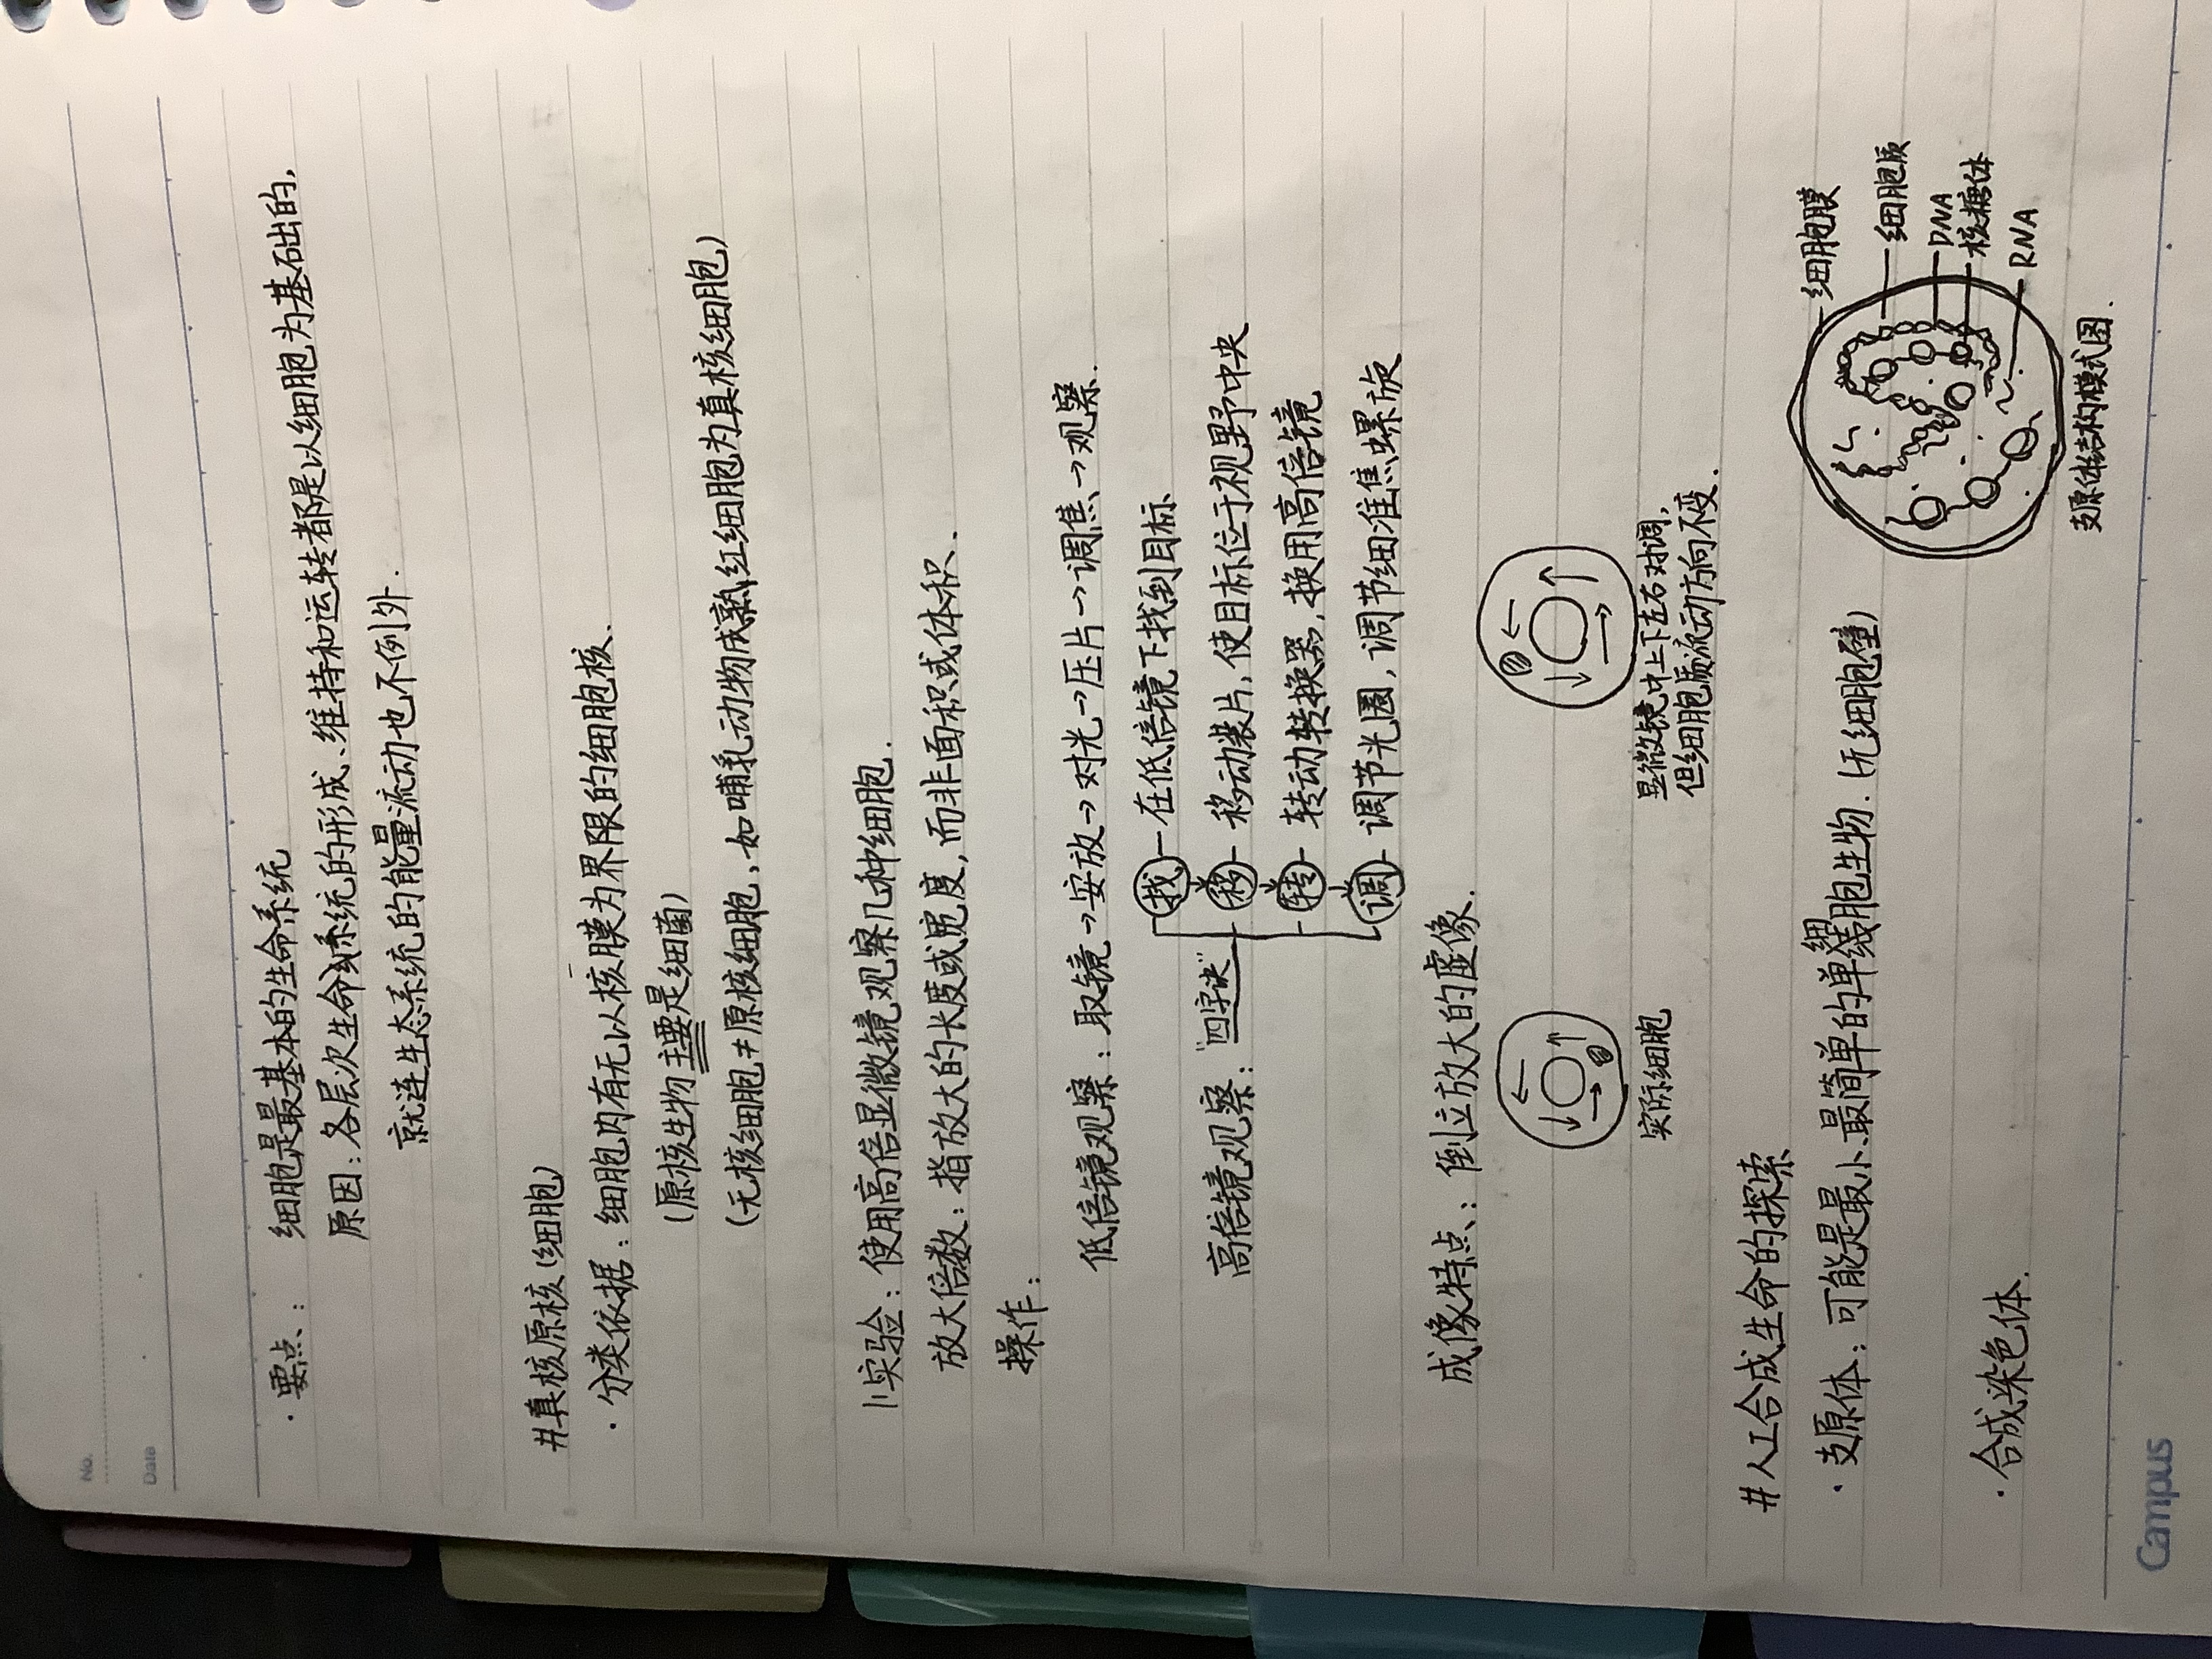 No.
Date
·要点：细胞是最基本的生命系统
原因：各层次生命系统的形成、维持和运转都是以细胞为基础的，
就连生态系统的能量流动也不例外.
#真核原核(细胞)
·分类依据：细胞内有无以核膜为界限的细胞核.
(原核生物主要是细菌)
(无核细胞≠原核细胞，如哺乳动物成熟红细胞为真核细胞)
实验：使用高倍显微镜观察几种细胞.
放大倍数：指放大的长度或宽度，而非面积或体积.
操作：
低倍镜观察：取镜→安放→对光→压片→调焦→观察.
高倍镜观察："四字诀"
找-在低倍镜下找到目标
移-移动装片，使目标位于视野中央
转-转动转换器，换用高倍镜
调-调节光圈，调节细准焦螺旋
成像特点：倒立放大的虚像.
实际细胞
显微镜中上下左右对调，
但细胞质流动方向不变.
#人工合成生命的探索
·支原体：可能是最小、最简单的单细胞生物.(无细胞壁)
细胞膜
细胞质
DNA
核糖体
RNA
支原体结构模式图.
·合成染色体.
Campus